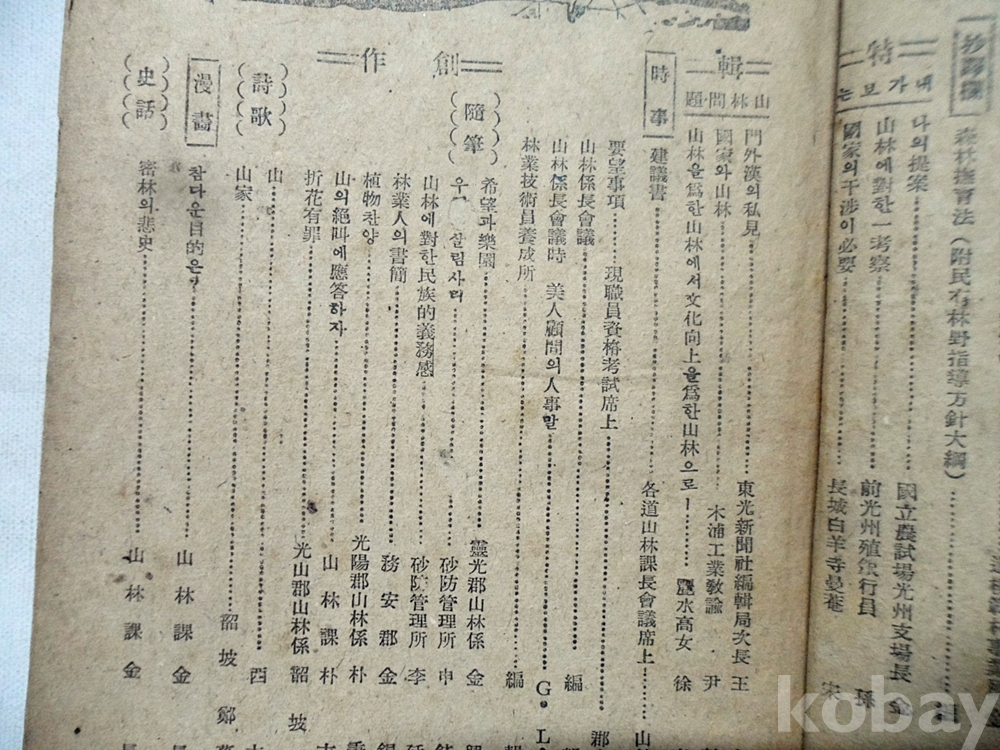 森林撫育法(附民有林野指導方針大綱)
特
내가보는
나의提案 國立農試場光州支場長 金
山林에對한一考察 前光州殖銀行員 孫
國家의干涉이必要 長城白羊寺曼菴 宋
輯
山林問題
門外漢의私見 東光新聞社編輯局次長 王
國家와山林 木浦工業敎諭 尹
山林을爲한山林에서文化向上을爲한山林으로ー 麗水高女 徐
時事
建議書 各道山林課長會議席上
要望事項 現職員資格考試席上
山林係長會議 編
山林係長會議時 美人顧問의人事말 G.
林業技術員養成所 編
創作
隨筆
希望과樂園 靈光郡山林係 金
우 살림사리 砂防管理所 申
山林에對한民族的義務感 砂防管理所 李
林業人의書簡 務安郡 金
植物찬양 光陽郡山林係 朴
山의絶叫에應答하자 山林課 朴
折花有罪 光山郡山林係 韶坡
詩歌
山
山家 韶坡 鄭
漫畵
참다운目的은 山林課 金
史話
密林의悲史 山林課 金
kobay